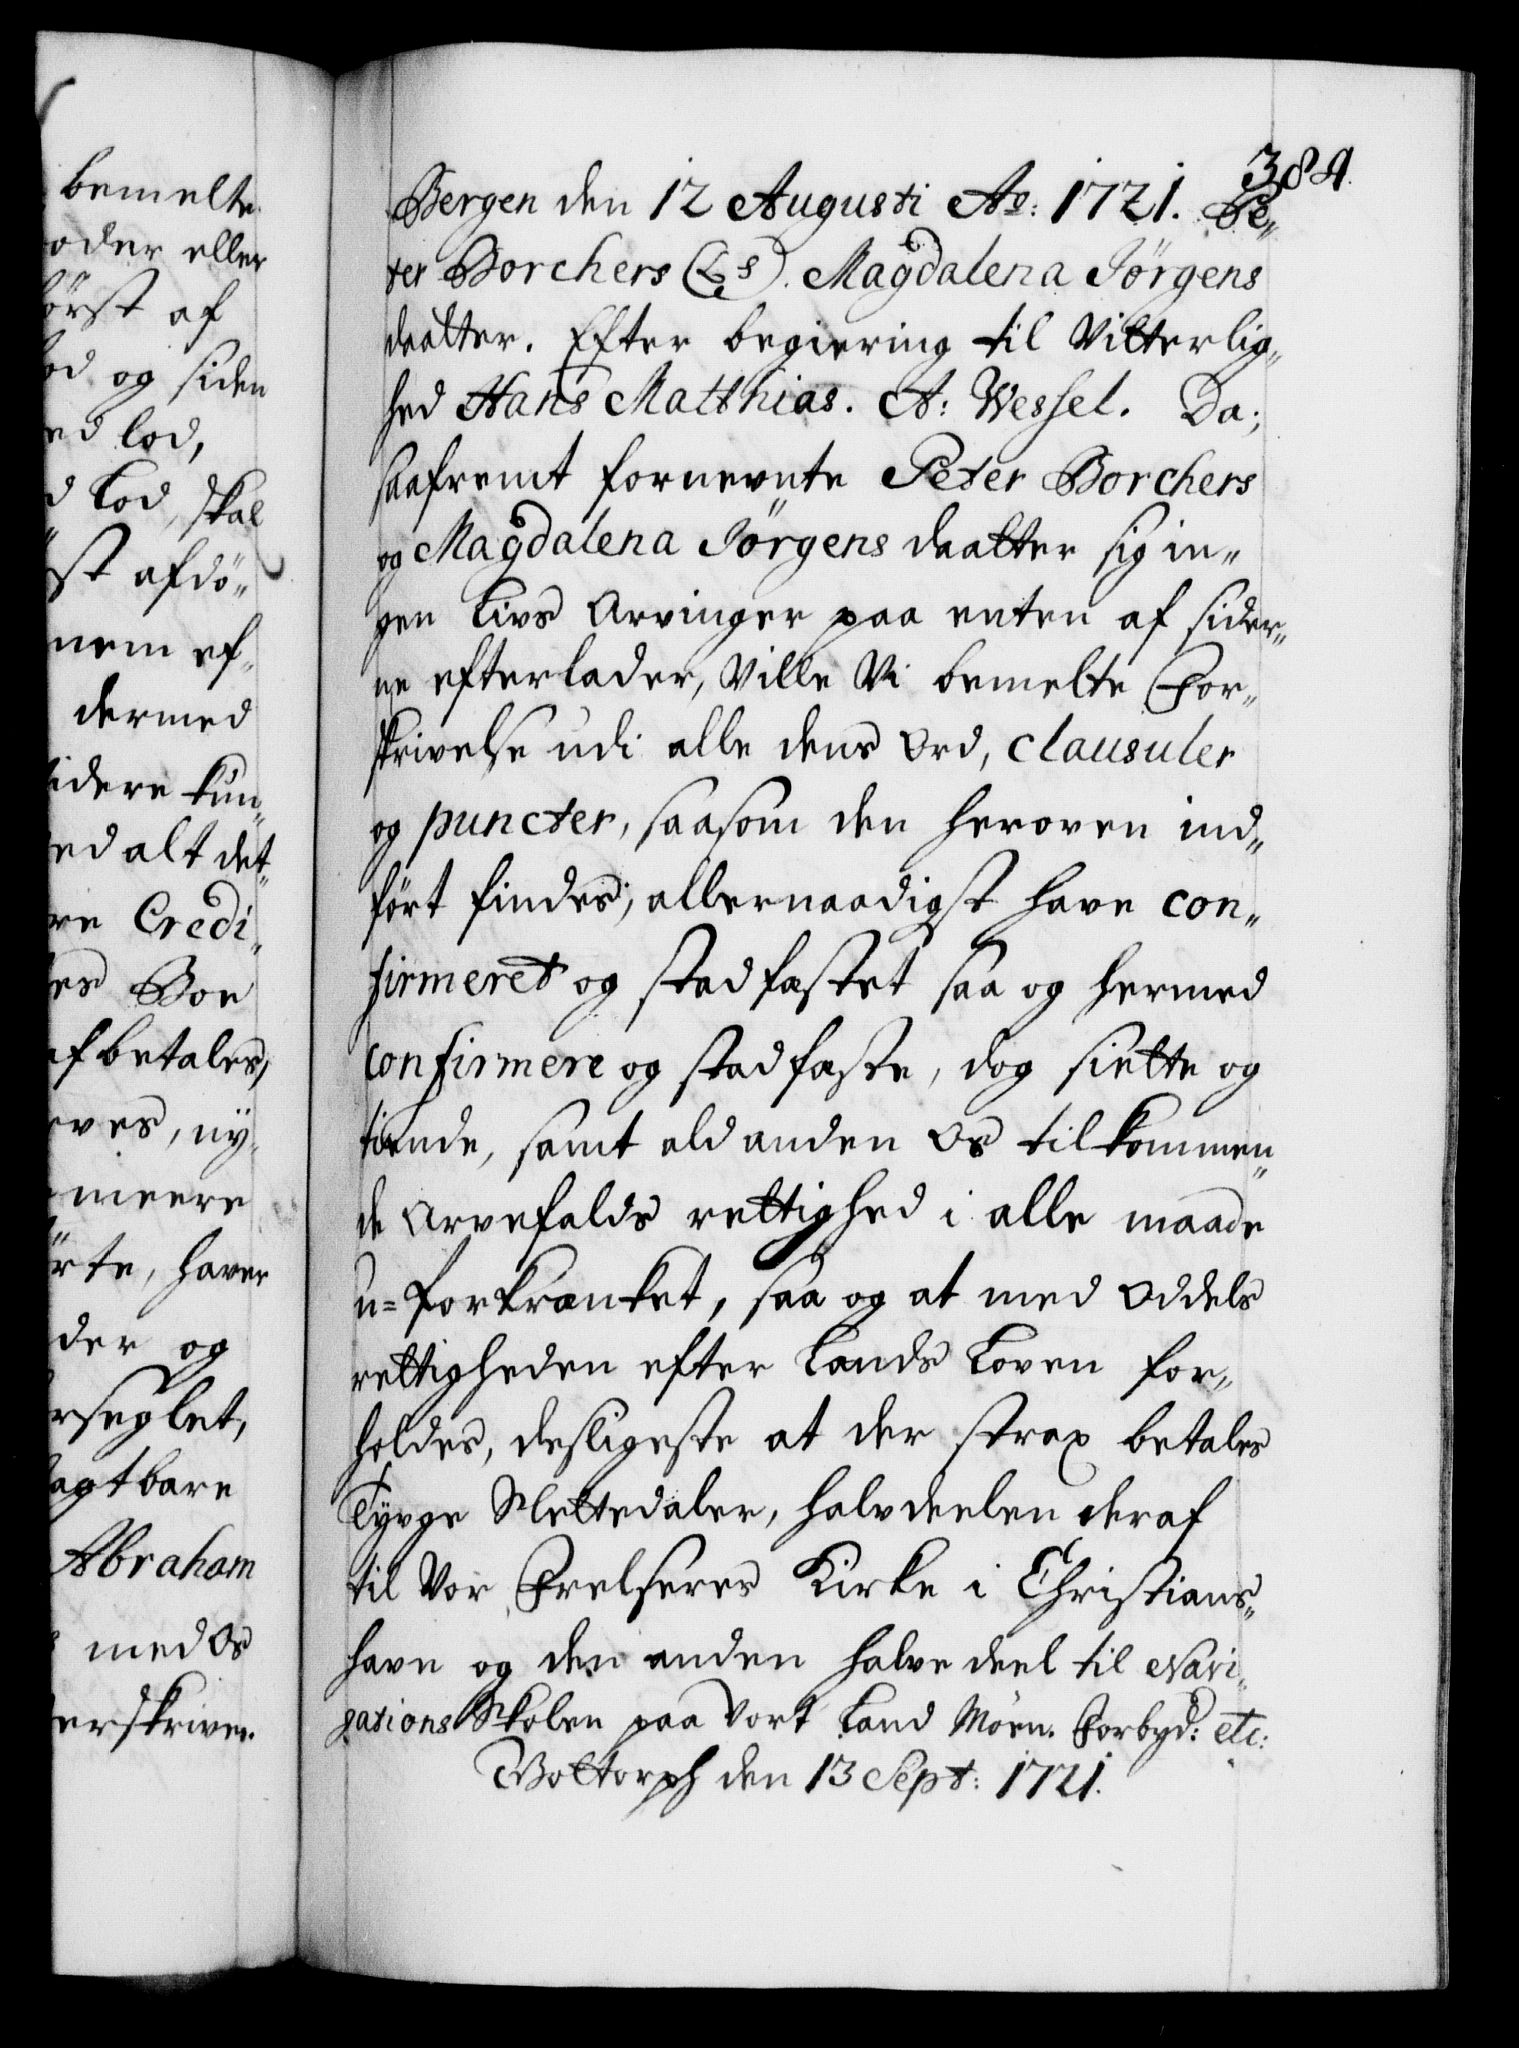 bemelte
oder eller
först af
lod og siden
ed lod,
d Lod, skal
st afdö„
nem ef„
dermed
idere kun„
ed alt det„
re Credi„
es Boe
afbetales,
eves, ny„
meere
örte, haver
der og
rseglet,
agtbare
Abraham
med Os
erskriven.
384.
Bergen den 12 Augusti Ao: 1721. Pe„
ter Borchers (LS). Magdalena Jörgens
daatter. Efter begiering til Vitterlig„
hed Hans Matthias. A: Wessel. Da;
saafremt fornevnte Peter Borchers
og Magdalena Jörgens daatter sig in„
gen Livs Arvinger paa enten af sider„
ne efterlader, Ville Vi bemelte For„
skrivelse udi alle dens Ord, clausuler
og puncter, saasom den heroven ind„
fört findes, allernaadigst have con„
firmeret og stadfæstet saa og hermed
confirmere og stadfæste, dog siette og
tiende, samt ald anden Os tilkommen„
de Arvefalds rettighed i alle maade
u=forkrænket, saa og at med Oddels
rettigheden efter Lands Loven for„
holdes, desligeste at der strax betales
Tyvge Slettedaler, halvdeelen deraf
til Vor Frelseres Kirke i Christians„
havn og den anden halve deel til Navi„
gations Skolen paa Vort Land Möen. Forbyd: etc:
Gottorph den 13 Sept: 1721.